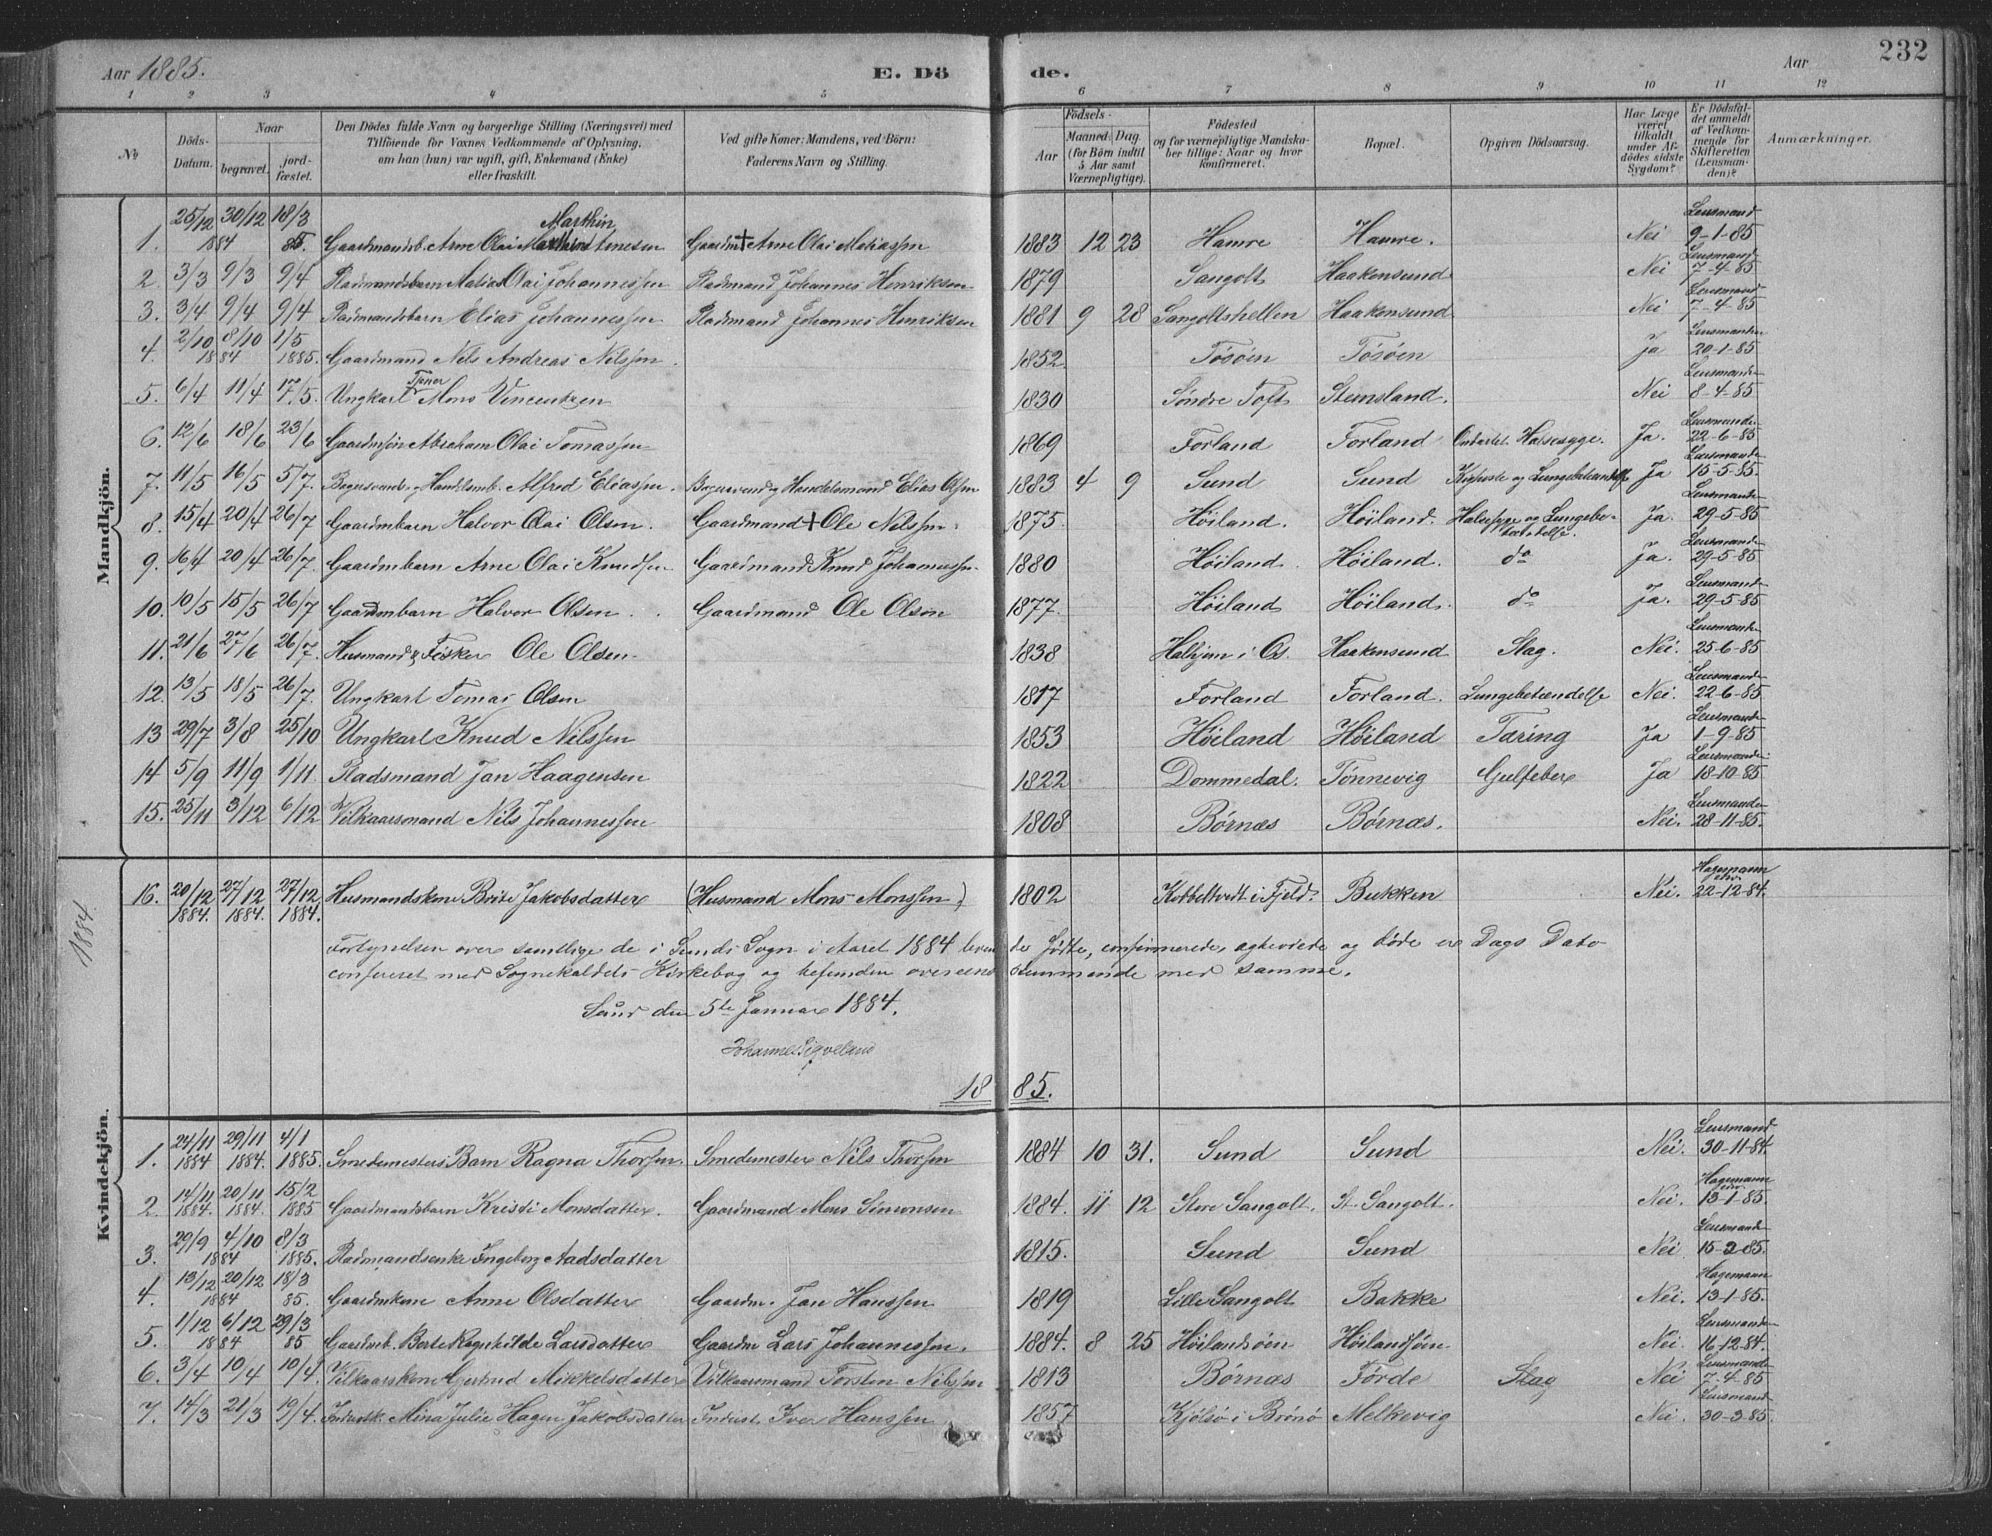 Aar 1885. E. Dö de. Aar 232
1 2 3 4 5 6 7 8 9 10 11 12
No Döds-Datum. Naar begravet. jordfæstet. Den Dödes fulde Navn og borgerlige Stilling (Næringsvei) med Tilföiende for Voxnes Vedkommende af Oplysning, om han (hun) var ugift, gift, Enkemand (Enke) eller fraskilt. Ved gifte Koner: Mandens, ved Börn: Faderens Navn og Stilling. Födsels- Aar Maaned Dag. (for Börn indtil 5 Aar samt Værnepligtige). Födested og for værnepligtige Mandskaber tillige: Naar og hvor konfirmeret. Bopæl. Opgiven Dödsaarsag. Har Læge været tilkaldt under Afdödes sidste Sygdom? Er Dödsfaldet anmeldt af Vedkommende for Skifteretten (Lensmanden)? Anmærkninger.
Mandkjön.
1. 25/12 30/12 1884 18/3 85. Gaardmandsb. Arne Olai Marthin Arnesen Gaardm † Arne Olai Matiassen 1883 12 23 Hamre Hamre. Nei Lensmand 9-1-85
2. 3/3 9/3 9/4 Pladsmandsbarn Matias Olai Johannessen Pladsmand Johannes Henriksen 1879 Sangolt Haakensund Nei Lensmand 7-4-85
3. 3/4 9/4 9/4 Pladsmandsbarn Elias Johannessen Pladsmand Johannes Henriksen 1881 9 28 Sangoltshellen Haakensund Nei Lensmand 7-4-85
4. 2/10 8/10 1884 1/5 1885. Gaardmand Nils Andreas Nilssen. 1852. Tösöen Tösöen Ja Lensmanden 20-1-85
5. 6/4 11/4 17/5. Ungkarl Tjener Mons Vincentsen 1830 Söndre Toft Stemsland. Nei Lensmanden 8-4-85
6. 12/6 18/6 23/6 Gaardmsön Abraham Olai Tomassen 1869 Forland Forland Ondartet Halsesyge. Ja. Lensmanden 22-6-85
7. 11/5 16/5 5/7. Alfred Eliassen. Handelsmand Elias Olsen 1883 4 9 Sund Sund Kighoste og Lungebetændelse Ja Lensmanden 15-5-85.
8. 15/4 20/4 26/7 Gaardmbarn Halvor Olai Olsen. Gaardmand † Ole Nilssen. 1875. Höiland. Höiland. Halsesyge og Lungebetændelse. Ja. Lensmanden 29-5-85
9. 16/4 20/4 26/7. Gaardmbarn Arne Olai Knudsen Gaardmand Knud Johannessen 1880 Höiland. Höiland. do Ja. Lensmanden 29-5-85
10. 10/5 15/5 26/7 Gaardmbarn Halvor Olsen. Gaardmand Ole Olsen 1877. Höiland Höiland. do Ja. Lensmanden 29-5-85
11. 21/6 27/6 26/7. Husmand & Fisker Ole Olsen 1838 Halhjem i Os. Haakensund Slag. Nei. Lensmanden 25-6-85
12. 13/5 18/5 26/7 Ungkarl Tomas Olsen 1817 Forland Forland. Lungebetændelse Nei. Lensmanden 22-6-85
13 29/7 3/8 25/10 Ungkarl Knud Nilssen 1853 Höiland Höiland Tæring Ja Lensmanden 1-9-85
14 5/9 11/9 1/11. Pladsmand Jan Haagensen 1822 Dommedal. Tönnevig Gulfeber Ja Lensmanden 18-10-85
15. 25/11 3/12 6/12 Vilkaarsmand Nils Johannessen 1808 Börnæs Börnæs. Nei. Lensmanden 28-11-85.
1884
16. 20/12 1884. 27/12 1884. 27/12 1884. Husmandskone Brite Jakobsdatter (Husmand Mons Monssen) 1802 Kobbeltvedt i Fjeld. Bukken Nei. Hagemann 22-12-84.
Fortegnelsen over samtlige de i Sunds Sogn i Aaret 1884 levende födte, confirmerede, egteviede og döde er Dags Dato
confereret med Sognekaldets Kirkebog og befunden overeensstemmende med samme.
Sund den 5te Januar 1884.
Johannes Sigveland
1885.
Kvindekjön.
1. 24/11 1884 29/11 1884. 4/1 1885. Smedemesters Barn Ragna Thorsen. Smedemester Nils Thorsen 1884 10 31. Sund Sund Nei. Lensmand 30-11-84.
2. 14/11 1884. 20/11 1884. 15/2 1885 Gaardmandsbarn Kristi Monsdatter. Gaardmand Mons Simonsen 1884. 11 12 Store Sangolt. St. Sangolt. Nei. Hagemann 13-1-85.
3. 29/9 4/10 1884 8/3 1885. Pladsmandsenke Ingeborg Aadsdatter 1815. Sund Sund Nei Lensmand 15-2-85.
4. 13/12 20/12 1884 18/3 85. Gaardmkone Anne Olsdatter Gaardm. Jan Hanssen 1819 Lille Sangolt Bakke Nei. Hagemann 13-1-85.
5. 1/12 6/12 1884 29/3 85 Gaardmb. Berte Ragnhilde Larsdatter Gaardm Lars Johannessen. 1884. 8 25 Höilandsöen Höilandsöen Nei. Lensmanden 16-12-84.
6. 3/4 10/4 19/4. Vilkaarskone Gjertrud Mikkelsdatter Vilkaarsmand Torsten Nilssen 1813 Börnæs Förde Slag Nei Lensmanden 7-4-85
7. 14/3 21/3 19/4. Inderstk. Mina Julie Hagen Jakobsdatter Inderst Iver Hanssen 1857 Kjölsö i Brönö Melkevig Nei. Lensmand 30-3-85.